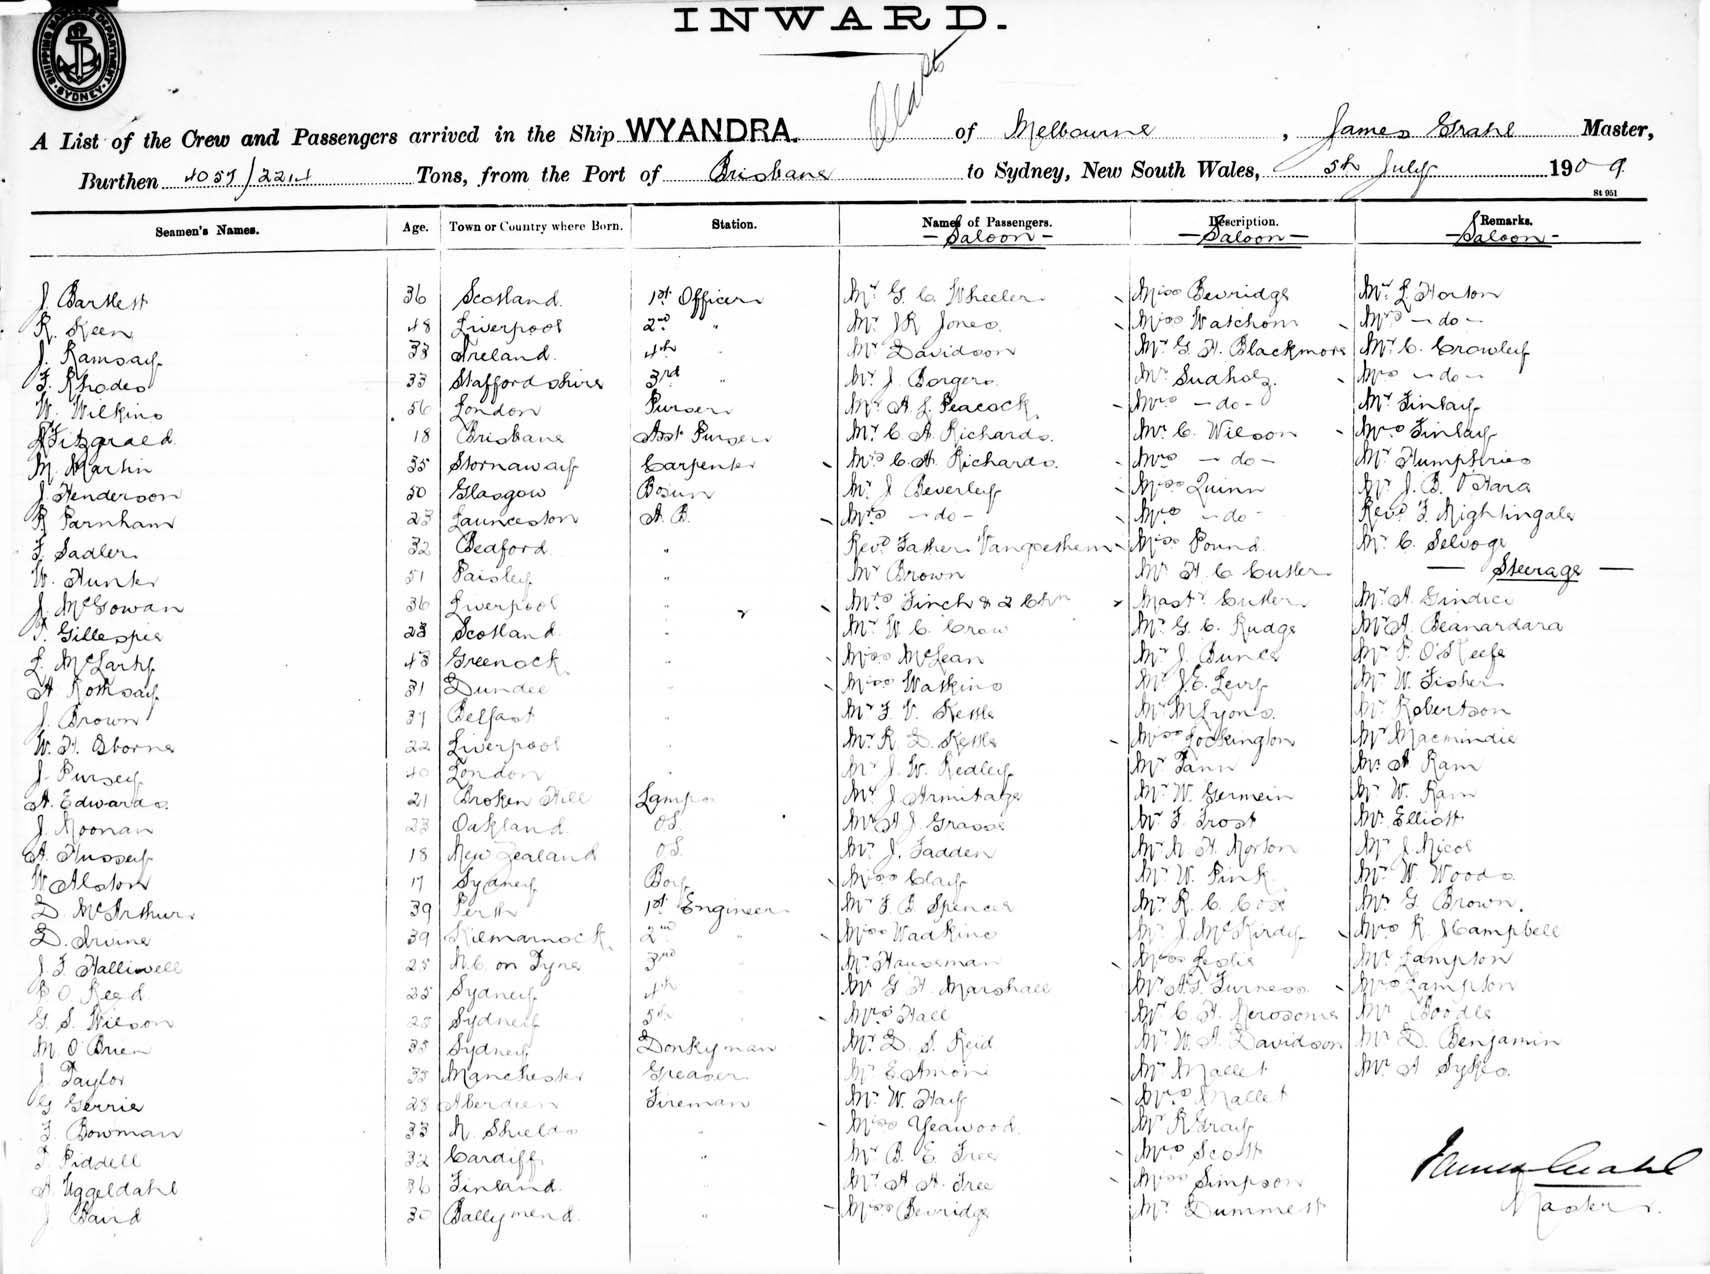 INWARD.
SHIPPING MASTERS DEPARTMENT SYDNEY
A List of the Crew and Passengers arrived in the Ship WYANDRA. of Melbourne, James Grahl Master,
Burthen 4057/2214 Tons, from the Port of Brisbane to Sydney, New South Wales, 5th July 1909.
St 951
Seamen's Names. Age. Town or Country where Born. Station. Names of Passengers. Description. Remarks.
- Saloon - - Saloon - - Saloon -
J. Bartlett 36 Scotland. 1st Officer Mr G. C. Wheeler Miss Bevridge Mr L. Horton
R. Keen 48 Liverpool 2nd " Mr J R Jones. Miss Watchom Mrs - do -
J. Ramsay 33 Ireland. 4th " Mr Davidson Mr G. H. Blackmore Mr C. Crowley
F. Rhodes 33 Staffordshire 3rd " Mr J. Borgers. Mr Sudholz. Mrs - do -
W. Wilkins 56 London Purser Mr A. L. Peacock Mrs - do - Mr Finlay
Fitzgrald 18 Brisbane Asst Purser Mr C. A. Richards. Mr C. Wilson Mrs Finlay
M. Martin 35 Stornaway Carpenter Mrs C. A. Richards. Mrs - do - Mr Humphries
J. Henderson 50 Glasgow Bosun Mr J Beverley Miss Quinn Mr J. B. O'Hara
R Parnham 23 Launceston A. B. Mrs - do - Mrs - do - Revd F. Nightingale
F. Sadler 32 Bedford. " Revd Father Vangoethem Miss Pound. Mr C. Selvage
W. Hunter 51 Paisley " Mr Brown Mr H. C. Cutler - Steerage -
J. McGowan 36 Liverpool " Mrs Finch & 2 Chn Mastr Cutler Mr A. Gindici
T. Gillespie 23 Scotland. " Mr W. C. Crow Mr G. C. Rudge Mr A. Beanardara
L. McLarty 43 Greenock " Miss McLean Mr J. Bunce Mr P. O'Keefe
A Rothsay 31 Dundee " Miss Watkins Mr J. E. Levy Mr W. Fisher
J. Brown 37 Belfast " Mr F. V. Kettle Mr M Lyons. Mr Robertson
W. H. Osborne 22 Liverpool " Mr R. D. Kettle Miss Lockington Mr Macmindie
J. Pursey 40 London " Mr J. W. Redley Mr Tann Mr A Ram
A. Edwards. 21 Broken Hill Lamps Mr J Armitage Mr W. Germein Mr W. Ram
J. Noonan 23 Oakland. O.S. Mr A J. Grasse Mr F. Frost Mr Elliott
A. Hussey 18 New Zealand O.S. Mr J. Fadden Mr N. H. Morton Mr J. Nicol
W Alston 17 Sydney Boy Miss Clay Mr W. Pink Mr W. Woods.
D. McArthur 39 Perth 1st Engineer Mr F. B. Spencer Mr R. C. Cox Mr G. Brown.
D. Irvine 39 Kilmarnock. 2nd " Miss Wadkins Mr J. McKirdy Mrs R. J Campbell
J. F. Halliwell 25 N. C. on Tyne 3rd " Mr Hauseman Miss Leslie Mr Lampton
O. Reed 25 Sydney 4th " Mr G. H. Marshall Mr A. G. Furness Mrs Lampton
G. S. Wilson 25 Sydney 5th " Mrs Hall Mr C. H. Merosome Mr Boodle
M. O'Brien 35 Sydney Donkyman Mr D. S. Reid Mr W. A. Davidson Mr D. Benjamin
J. Taylor 35 Manchester Greaser Mr E Amoni Mr Mallet Mr A Sykes.
G Gerrie 28 Aberdeen Fireman Mr W. Hay Mrs Mallet
F. Bowman 33 N. Shields " Miss Yeawood. Mr R Gray
T. Piddell 32 Cardiff " Mr B. E. Free Mrs Scott
A Uggeldahl 36 Finland. " Mr A. H. Free Miss Simpson
J Baird 30 Ballymend. " Miss Bevridge Mr Dummett
James Grahl
Master.